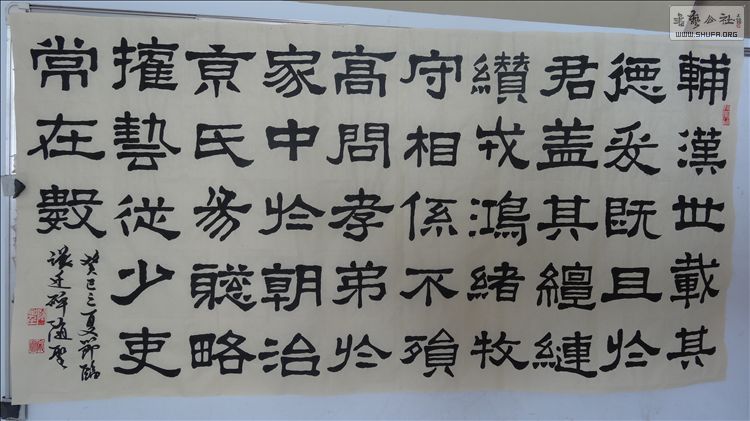 輔漢世載其
德爰既且於
君盖其繵縺
纘戎鴻緒牧
守相係不殞
高問孝弟於
家中於朝治
京氏易聡略
權藝從少吏
常在數
癸巳之夏節臨
張迁碑
书艺公社
WWW.SHUFA.ORG